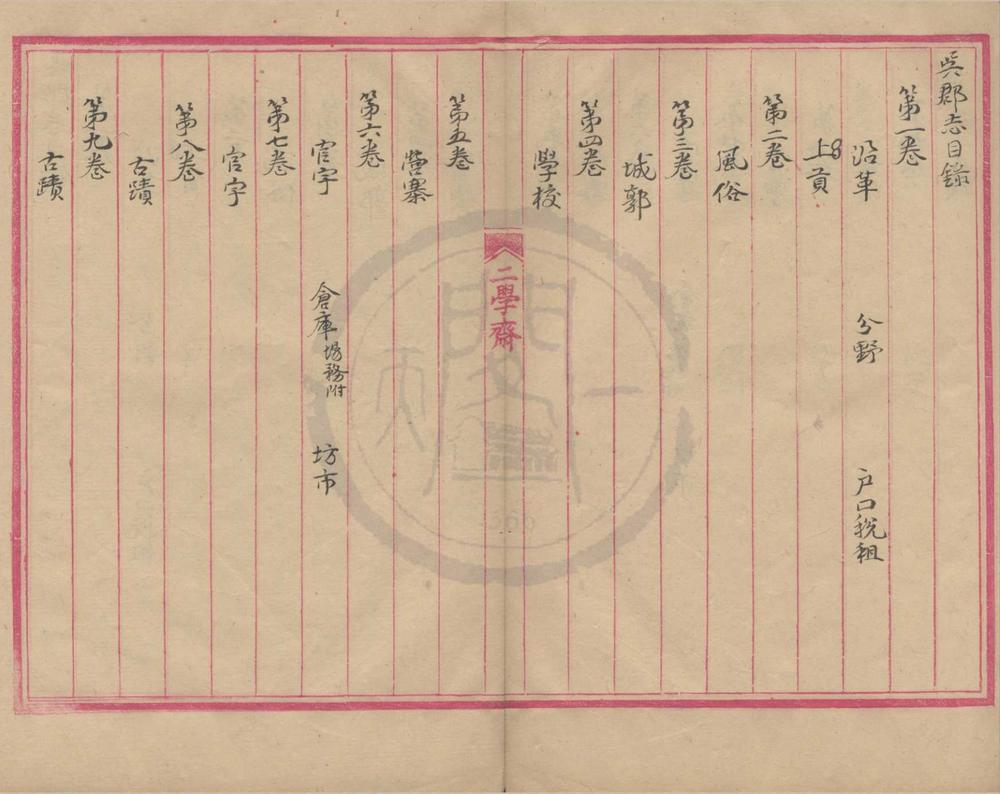 吳郡志目錄
第一卷
沿革 分野 户口税租
土貢
第二卷
風俗
第三卷
城郭
第四卷
學校
二學齋
第五卷
營寨
第六卷
官宇 倉庫場務附 坊市
第七卷
官宇
第八卷
古蹟
第九卷
古蹟